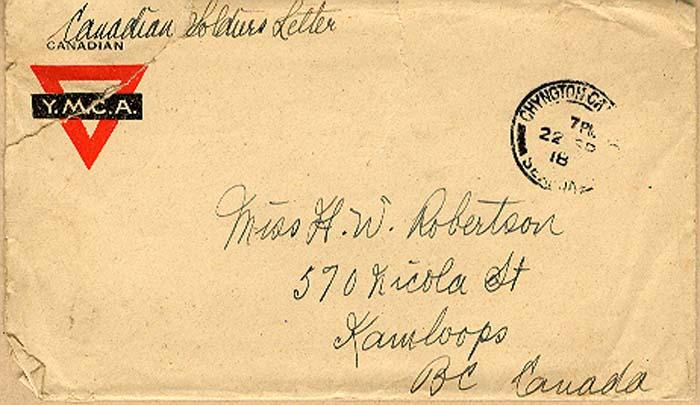 Canadian Soldiers Letter
CANADIAN
Y.M.C.A.
CHYNGTON CA
22
18
Miss H. W. Robertson
570 Nicola St
Kamloops
BC Canada